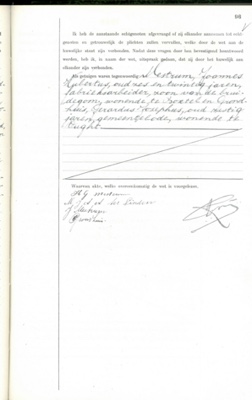 66
Ik heb de aanstaande echtgenooten afgevraagd of zij elkander aannemen tot echt-
genooten en getrouwelijk de plichten zullen vervullen, welke door de wet aan den
huwelijken staat zijn verbonden. Nadat deze vragen door hen bevestigend beantwoord
werden, heb ik, in naam der wet, uitspraak gedaan, dat zij door het huwelijk aan
elkander zijn verbonden.
Als getuigen waren tegenwoordig: Mestrum, Joannes
Hubertus, oud zes en twintig jaren,
fabrieksarbeider, zoon van de brui-
degom, wonende te Boxtel en
Gerardus Josephus, oud zestig
jaren, gemeentebode, wonende te
Vught.
Waarvan akte, welke overeenkomstig de wet is voorgelezen.